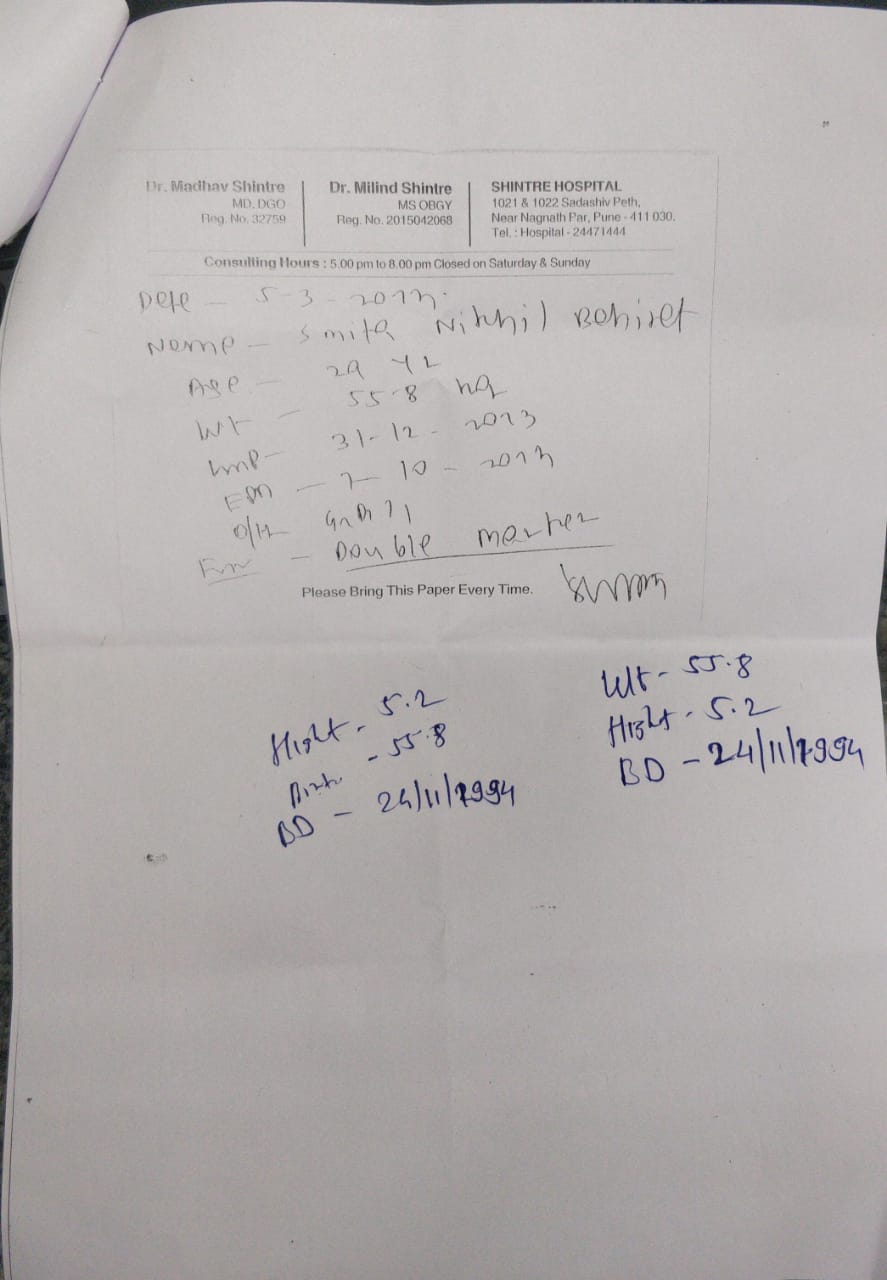 Dr. Madhav Shintre
MD. DGO
Reg. No. 32759
Dr. Milind Shintre
MS OBGY
Reg. No. 2015042068
SHINTRE HOSPITAL
1021 & 1022 Sadashiv Peth,
Near Nagnath Par, Pune - 411 030.
Tel. : Hospital - 24471444
Consulting Hours : 5.00 pm to 8.00 pm Closed on Saturday & Sunday
Date - 5-3-
Name - Smita Nikhil
Age - 29 yr
Wt - 55.8 kg
LMP - 31-12-2023
EDD - 7-10-
O/H
For - Double marker
Please Bring This Paper Every Time.
Hight - 5.2
- 55.8
BD - 24/11/1994
Wt - 55.8
Hight - 5.2
BD - 24/11/1994